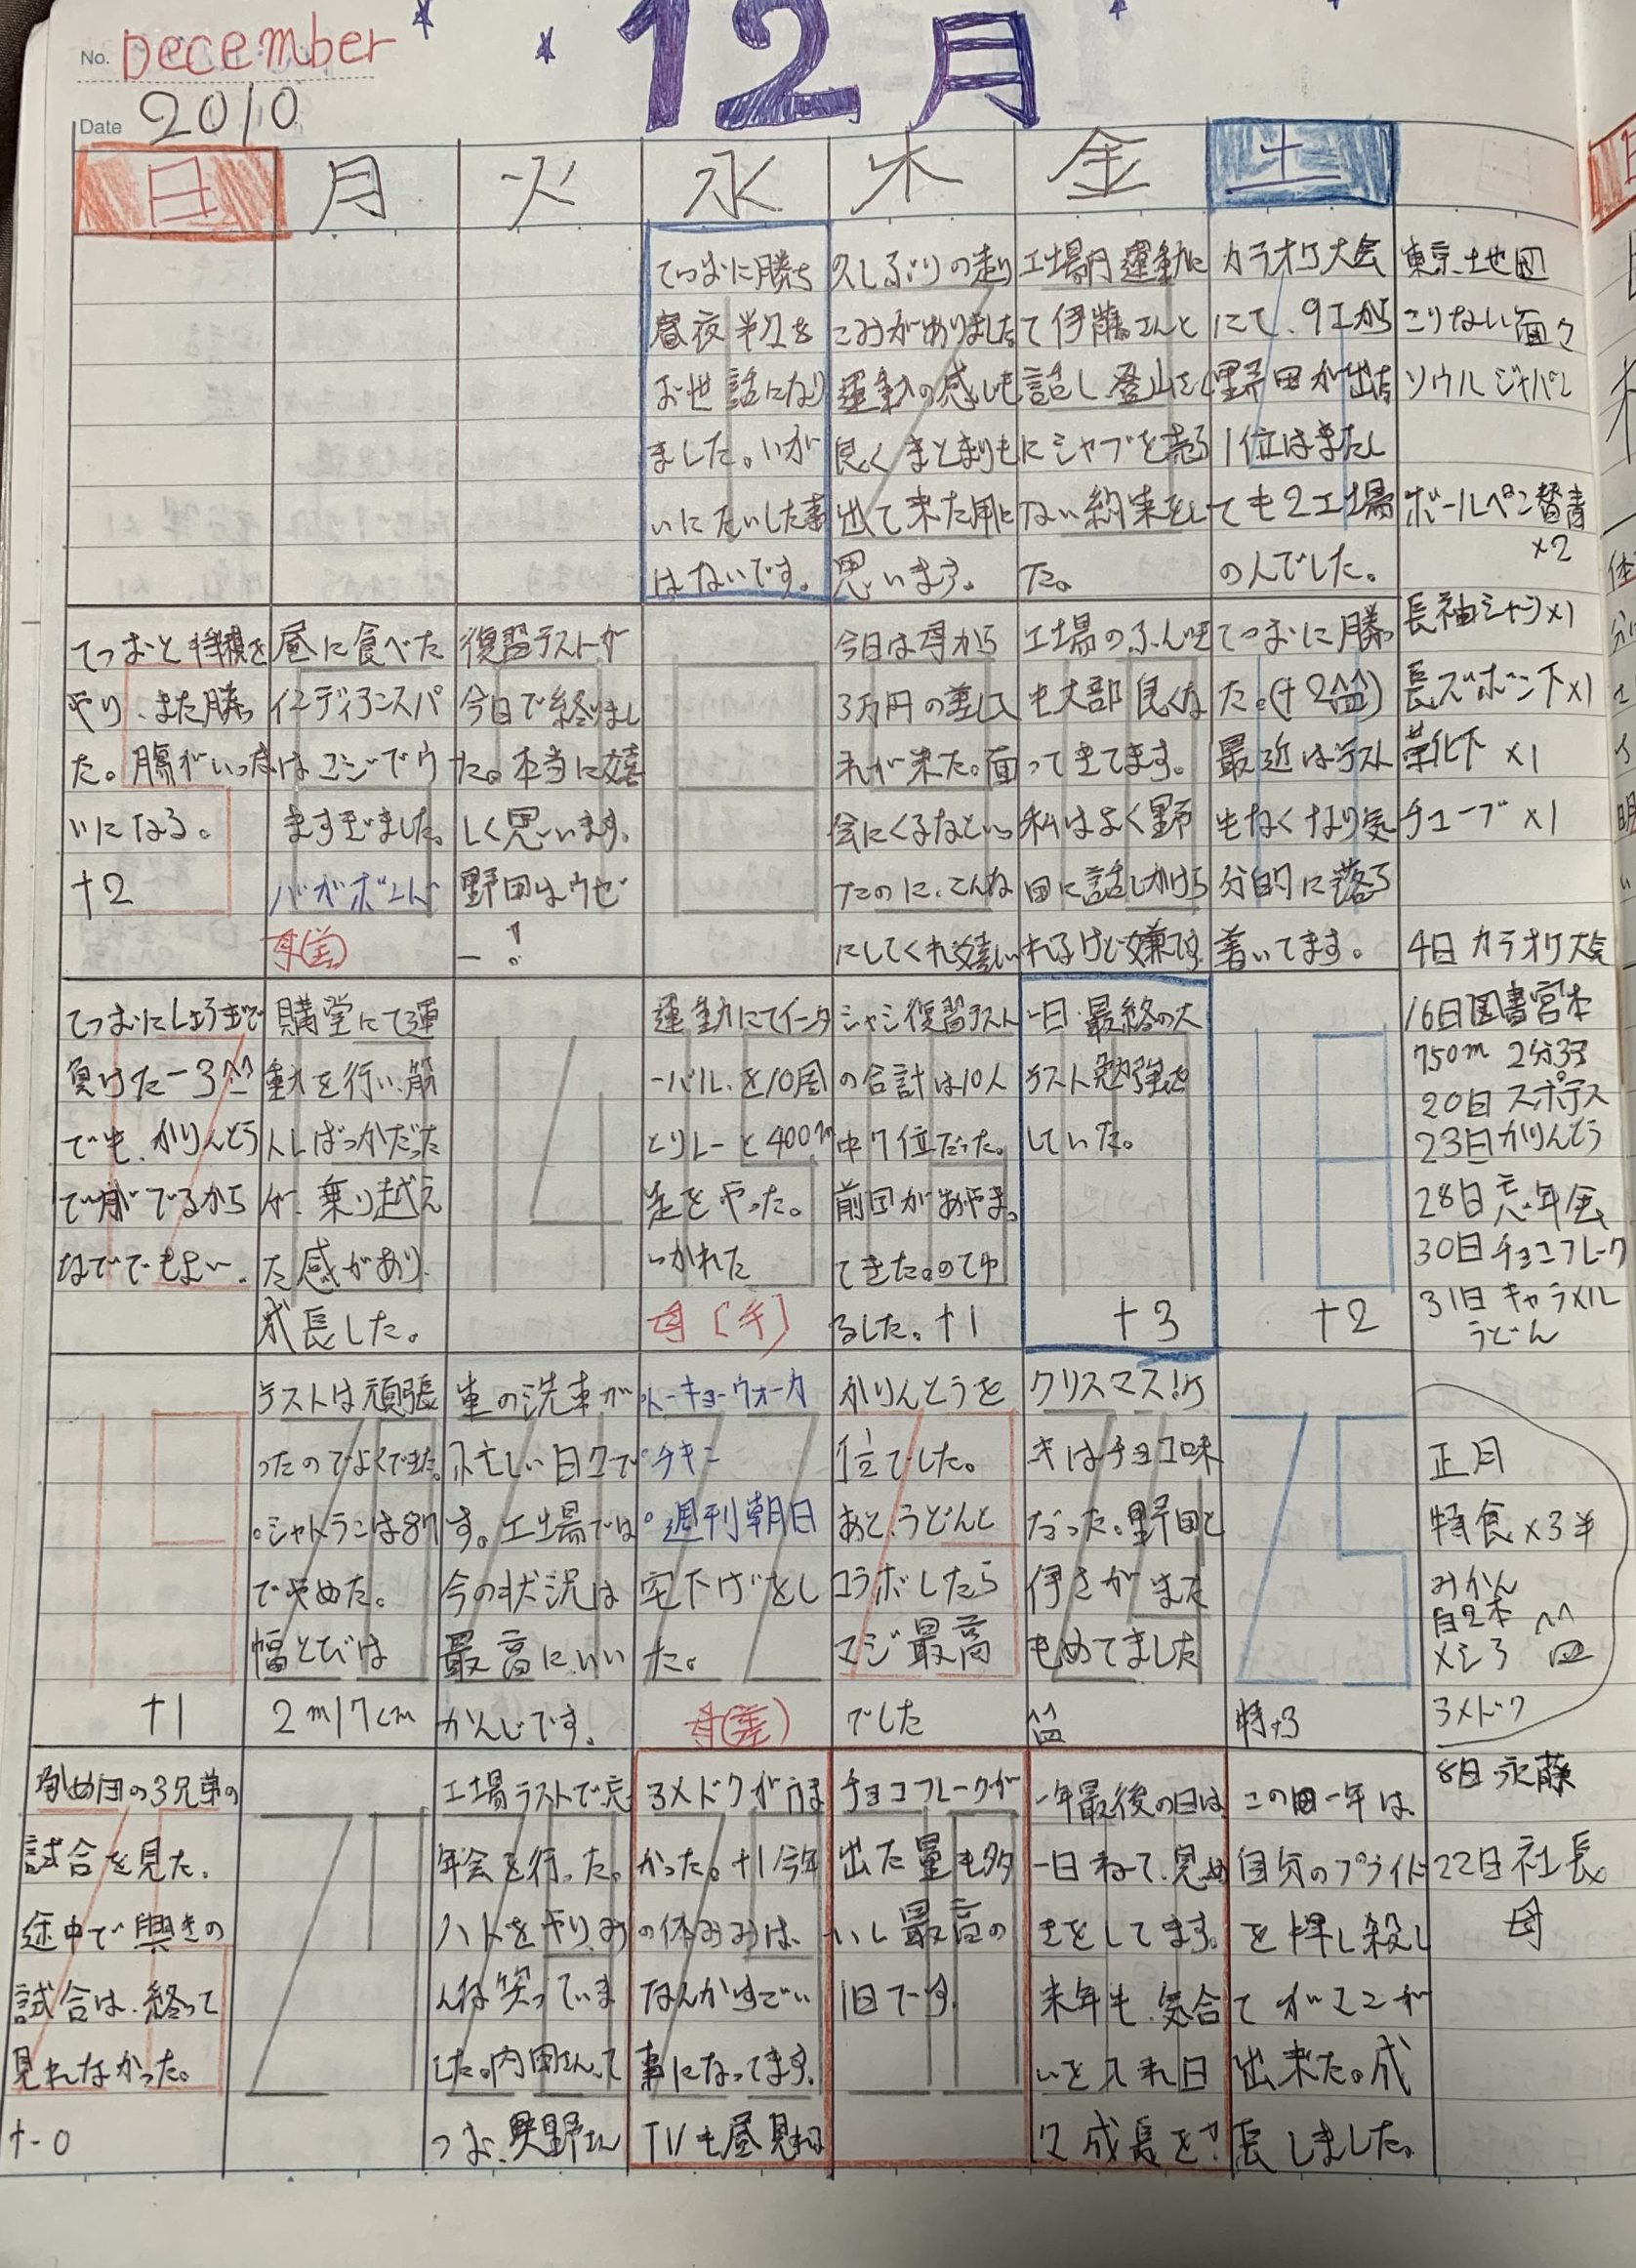 No. December
12月
Date 2010
日 月 火 水 木 金 土
てつおに勝ち
昼夜半位を
お世話になり
ました。いが
いにたいした事
はないです。
久しぶりの走り
こみがありました。
運動の感じも
良くまとまりも
出て来た用に
思います。
工場内運動に
て伊藤さんと
話し登山さん
にシャブを売ら
ない約束をし
た。
カラオケ大会
にて、9工から
野田が出た
1位はまたし
ても2工場
の人でした。
東京土地図
こりない面々
ソウルジャパン
ボールペン替青
×2
長袖シャツ×1
長ズボン下×1
靴下×1
チューブ×1
てつおと将棋を
やり、また勝っ
た。腸がいっぱ
いになる。
+2
昼に食べた
インディアンスパ
はマジでウ
ますぎました。
バガボンド
母(差)
復習テストが
今日で終りまし
た。本当に嬉
しく思います。
野田はウゼ
ー!
8
今日は母から
3万円の差し入
れが来た。面
会にくるなといっ
たのに、こんな
にしてくれ嬉しい
工場のふんいき
も大部良くな
ってきてます。
私はよく野
田に話しかけら
れるけど嫌です。
てつおに勝っ
た。(+2^^)
最近はテスト
もなくなり気
分的に落ち
着いてます。
4日 カラオケ大会
てつおにしょうぎで
負けた−3^^
でも、かりんとう
が月でるから
なでてもよい。
講堂にて運
動を行い、筋
トレばっかだった
が、乗り越え
た感があり、
成長した。
14
運動にてインタ
ーバルを10周
とリレーと400m
走をやった。
つかれた
母[手]
シャシ復習テスト
の合計は10人
中7位だった。
前回があやまっ
てきた。のでゆ
るした。+1
一日、最終の大
テスト勉強を
していた。
+3
18
+2
16日図書宮本
750m 2分33
20日 スポテス
23日かりんとう
28日 忘年会
30日チョコフレーク
31日 キャラメル
うどん
19
+1
テストは頑張
ったのでよくできた。
。シャトランは87
でやめた。
幅とびは
2m17cm
車の洗車が
忙しい日々で
す。工場では
今の状況は
最高にいい
かんじです。
。トーキョーウォーカ
。チキン
。週刊朝日
宅下げをし
た。
母(差)
かりんとうを
位でした。
あと、うどんと
コラボしたら
マジ最高
でした
クリスマス!ケ
ーキはチョコ味
だった。野田と
伊さがまた
もめてました
25
特+3
正月
特食×3半
みかん
メシ3
3メドク
亀田の3兄弟の
試合を見た。
途中で興きの
試合は、終って
見れなかった。
+-0
27
工場ラストで忘
年会を行った。
ハトをやり、み
んな笑っていま
した。内田さん、て
つお、奥野さん
3メドクがうま
かった。+1今年
の休みは、
なんかすごい
事になってます。
TVも昼見れる
チョコフレークが
出た量も多
いし最高の
1日です。
一年最後の日は
一日ねて、見納め
きをしてます。
来年も、気合
いを入れ日
々成長を?
この一年は、
自分のプライド
を押し殺し
てガマンが
出来た。成
長しました。
8日 永藤
22日 社長
母